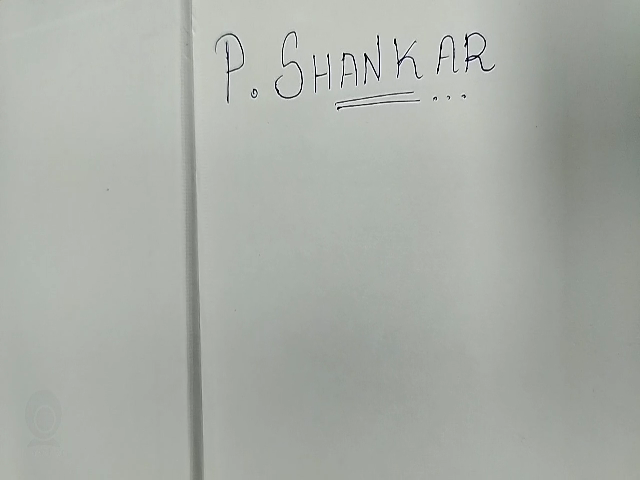 P. SHANKAR
...